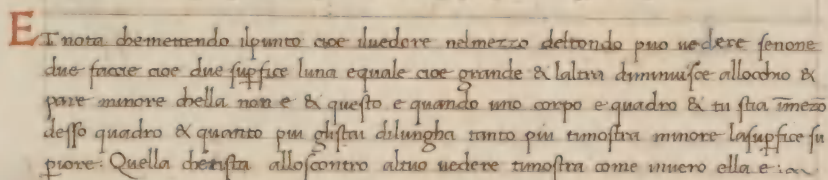 ET nota chemettendo ilpunto cioe iluedore nelmezzo deltondo puo uedere senone
due faccie cioe due supfice luna equale cioe grande & laltra diminuisce allochio &
pare minore chella non e & questo e quando uno corpo e quadro & tu stia imezo
desso quadro & quanto piu glistai dilungha tanto piu timostra minore lasupfice su
piore: Quella chetista alloscontro altuo uedere timostra come inuero ella e :